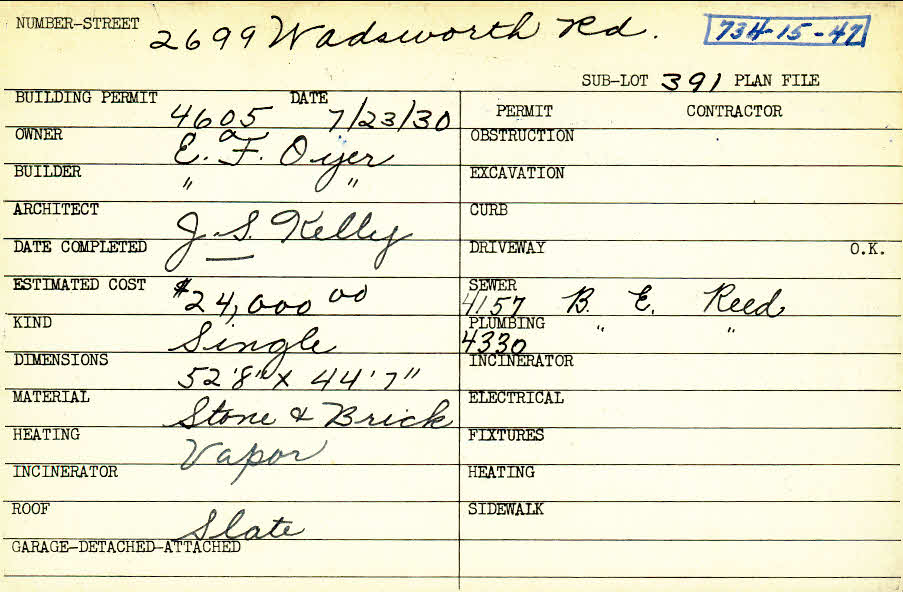 NUMBER-STREET 2699 Wadsworth Rd. 734-15-47
SUB-LOT 391 PLAN FILE
BUILDING PERMIT 4605 DATE 7/23/30
PERMIT CONTRACTOR
OWNER E. F. Oyer
OBSTRUCTION
BUILDER " "
EXCAVATION
ARCHITECT J. S. Kelly
CURB
DATE COMPLETED —
DRIVEWAY O.K.
ESTIMATED COST $24,000 00
SEWER 4157 B. E. Reed
KIND Single
PLUMBING 4330 " "
DIMENSIONS 52'8" X 44'7"
INCINERATOR
MATERIAL Stone & Brick
ELECTRICAL
HEATING Vapor
FIXTURES
INCINERATOR
HEATING
ROOF Slate
SIDEWALK
GARAGE-DETACHED-ATTACHED